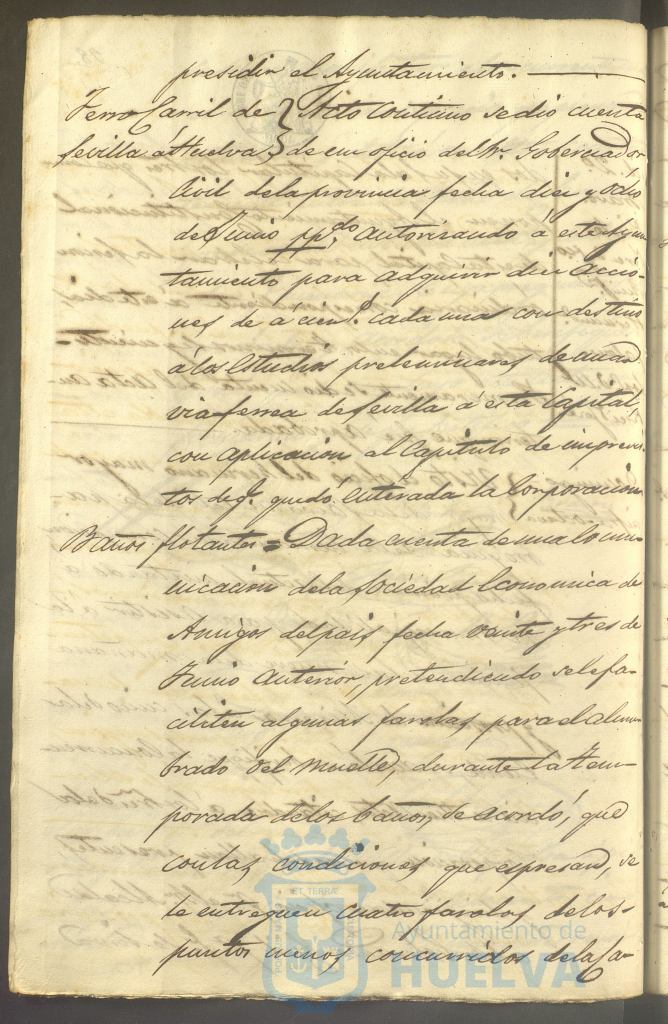 presidir el Ayuntamiento.
Ferro Carril de Sevilla á Huelva } Acto continuo se dio cuenta
de un oficio del Sr. Gobernador
Civil de la provincia fecha diez y ocho
de Junio pp.do autorizando á este Ayun-
tamiento para adquirir diez accio-
nes de á cien cada una con destino
á los estudios preleminares de una
via-ferrea de Sevilla á esta Capital,
con aplicacion al Capitulo de imprevis-
tos de q.e quedó enterada la Corporacion
Baños flotantes = Dada cuenta de una Comu-
nicacion de la Sociedad Economica de
Amigos del pais, fecha veinte y tres de
Junio anterior, pretendiendo se le fa-
ciliten algunas farolas para el alum-
brado del muelle, durante la tem-
porada de los baños, se acordó, que
con las condiciones que espresan, se
le entreguen cuatro farolas de los
puntos menos concurridos de la Ca-
ET TERRÆ
Ayuntamiento de
HUELVA